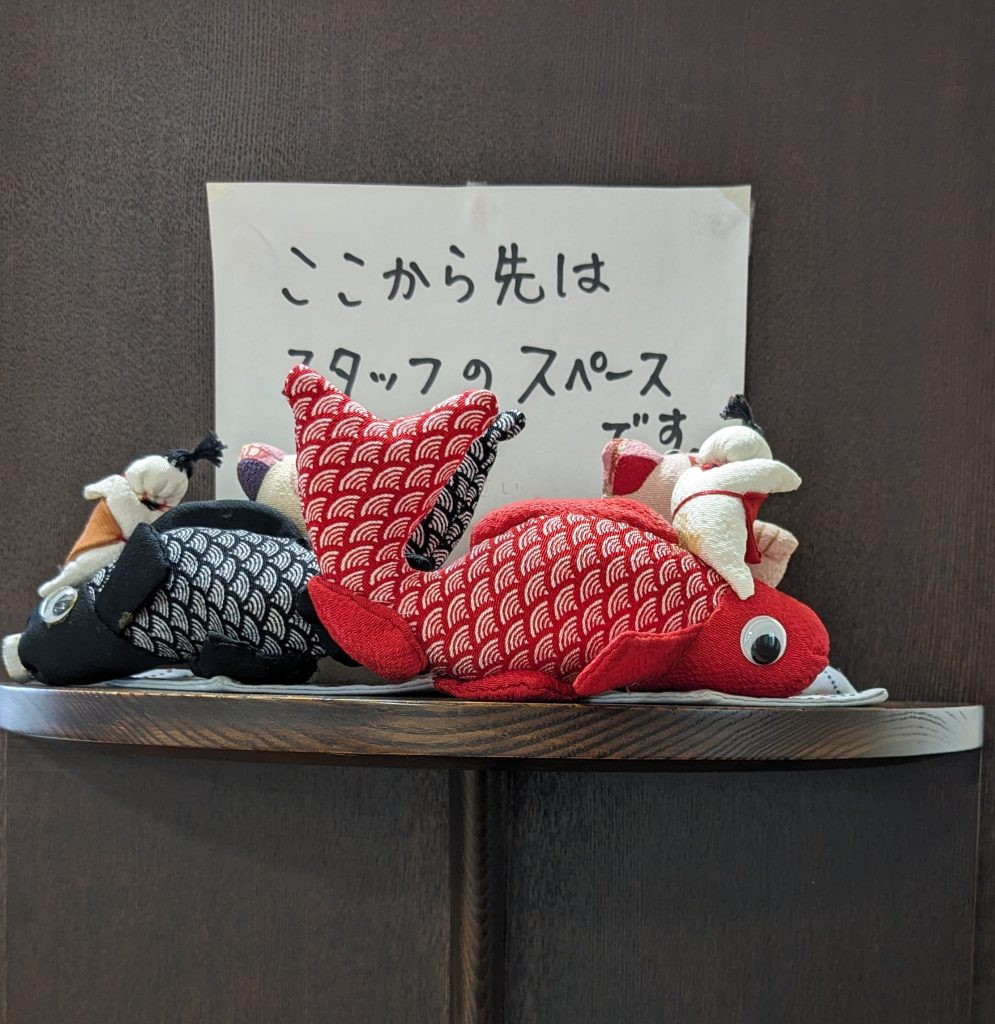 ここから先は
スタッフのスペース
です。